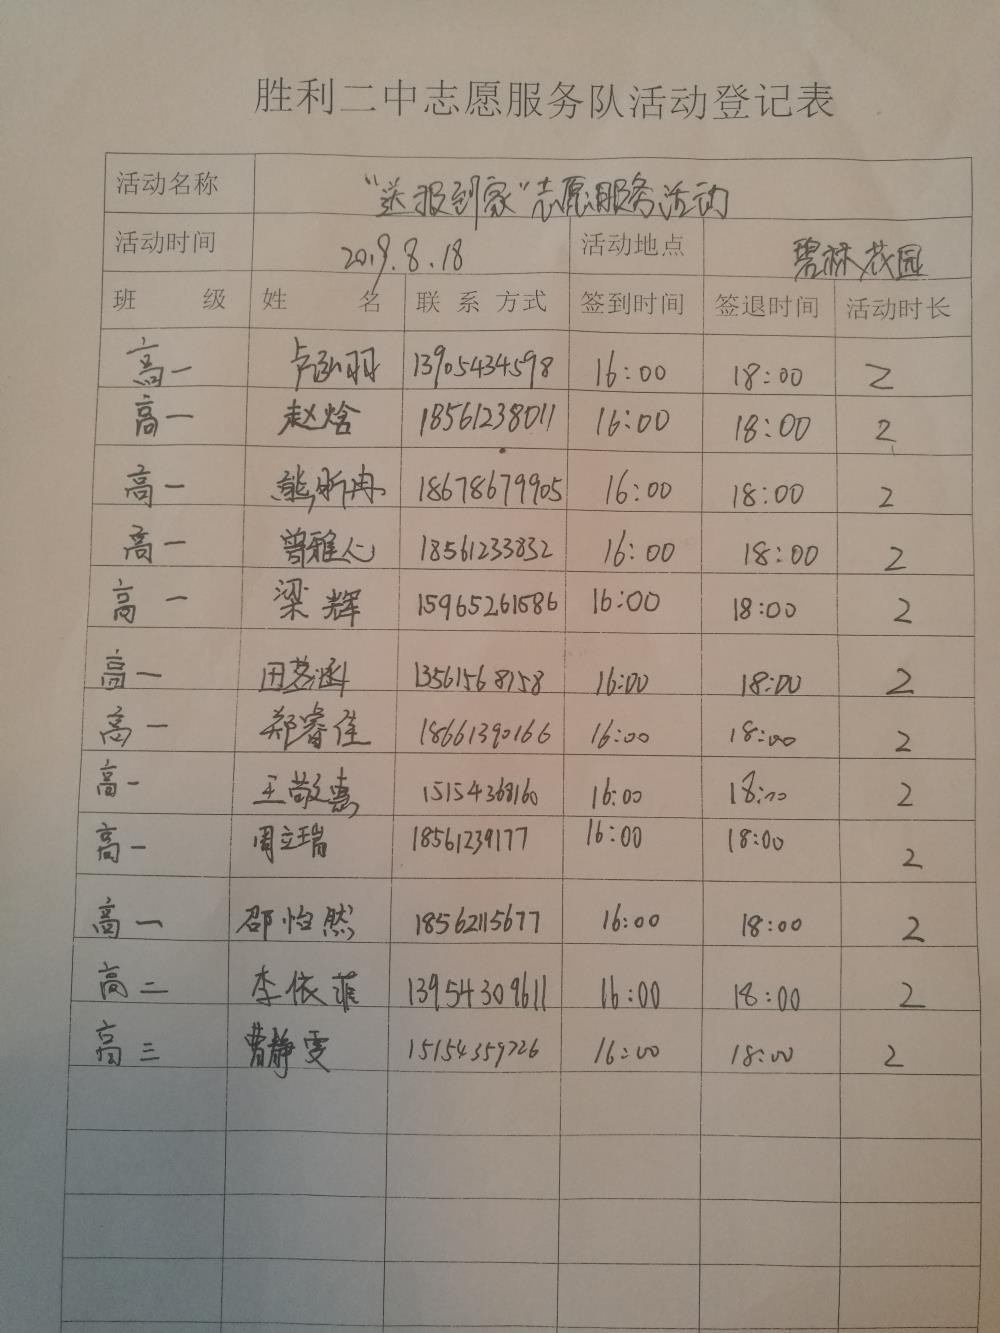 胜利二中志愿服务队活动登记表
活动名称 “送报到家”志愿服务活动
活动时间 2019.8.18 活动地点 碧林花园
班 级 姓 名 联 系 方式 签到时间 签退时间 活动时长
高一 卢羽 13905434598 16:00 18:00 2
高一 赵焓 18561238011 16:00 18:00 2
高一 熊昕冉 18678679905 16:00 18:00 2
高一 曾雅心 18561233832 16:00 18:00 2
高一 梁辉 15965261586 16:00 18:00 2
高一 田茗涵 13561568158 16:00 18:00 2
高一 郑睿佳 18661390166 16:00 18:00 2
高一 王敬惠 15154368160 16:00 18:00 2
高一 周立瑞 18561239177 16:00 18:00 2
高一 邵怡然 18562115677 16:00 18:00 2
高二 李依菲 13954309611 16:00 18:00 2
高三 曹静雯 15154359726 16:00 18:00 2